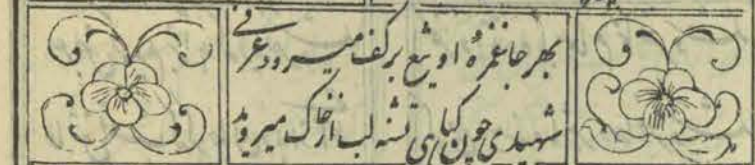 بهر جا غمزهٔ او تیغ بر کف میرود عرفی
شهیدی چون گیاهی تشنه لب از خاک میروید